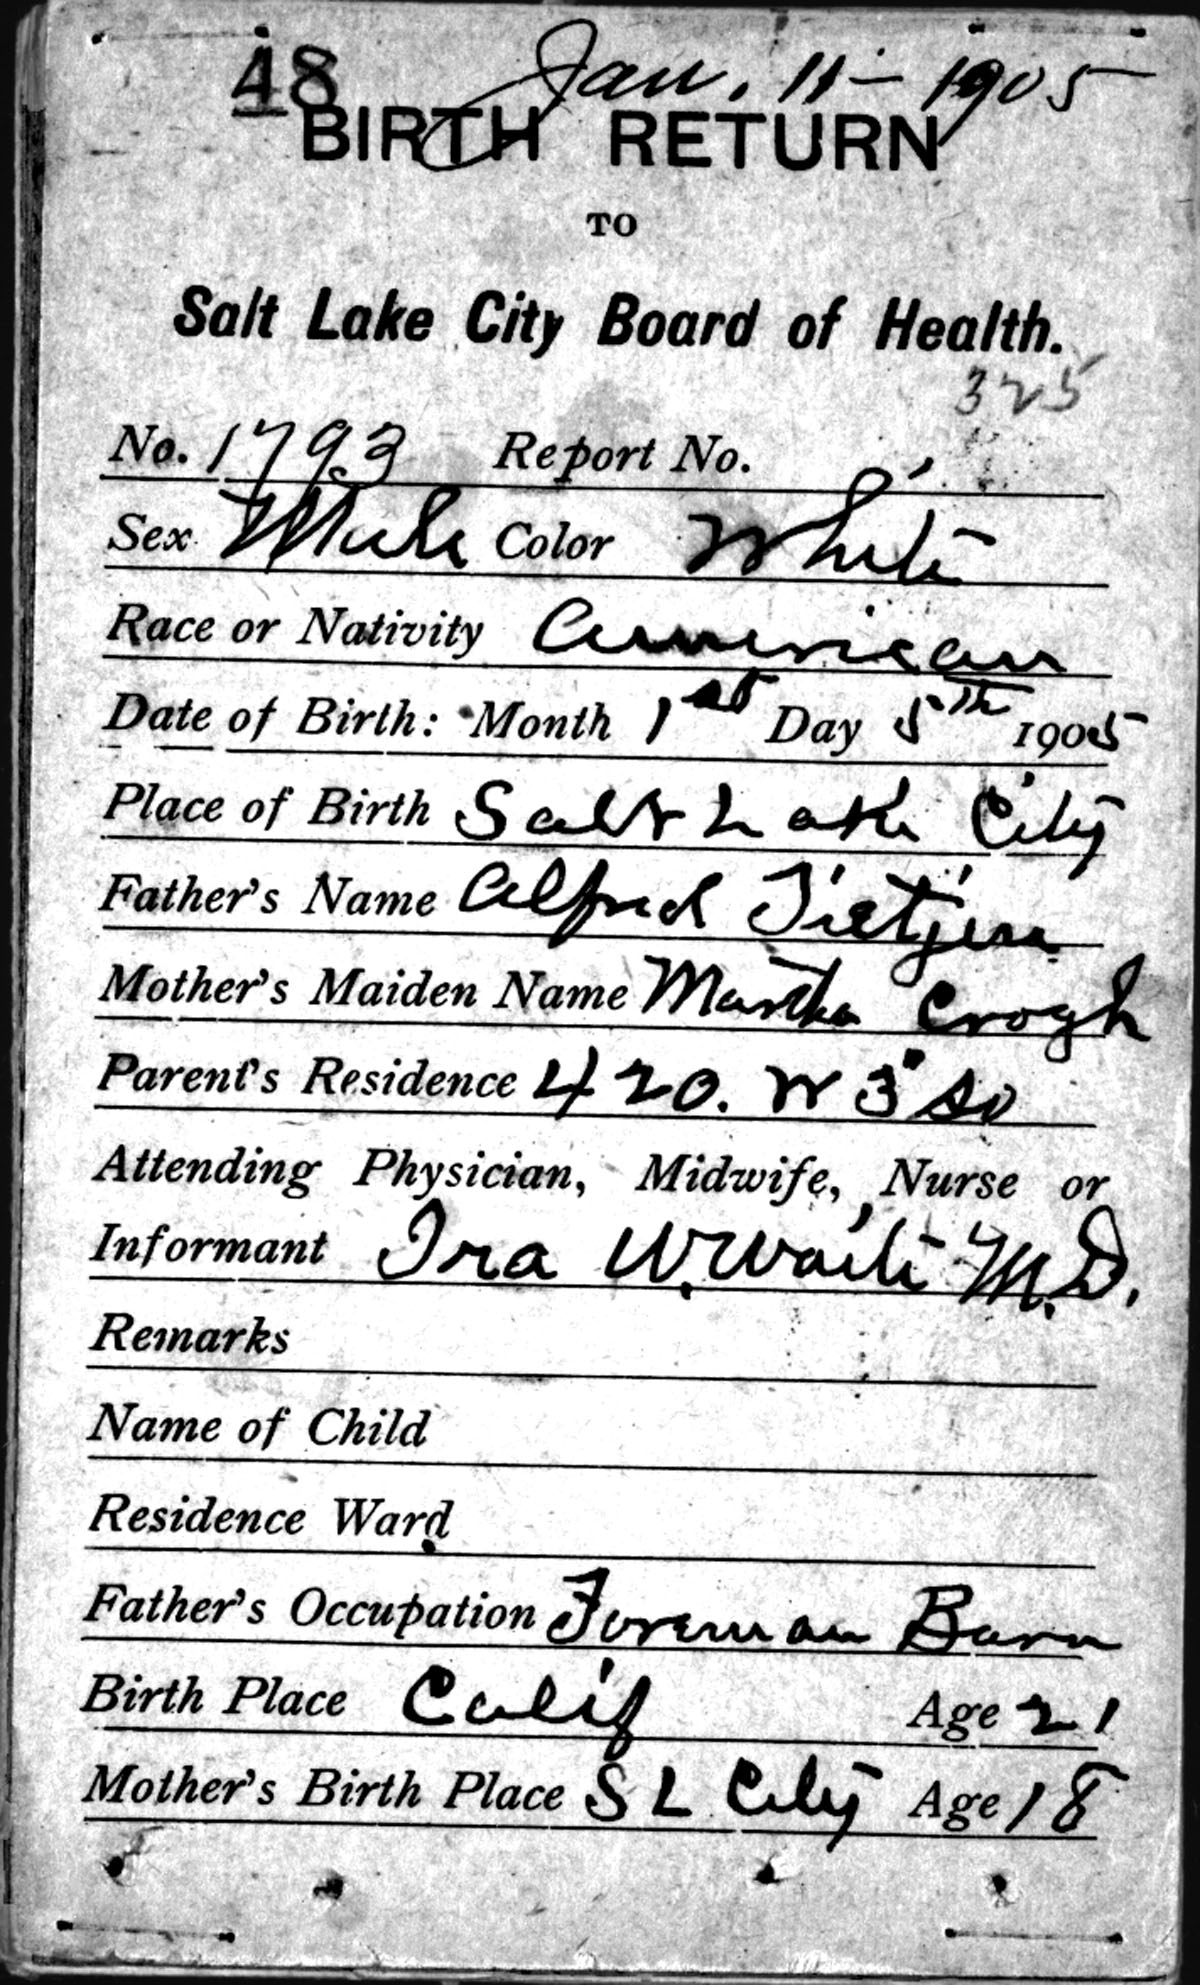 48 Jan. 11 - 1905
BIRTH RETURN
TO
Salt Lake City Board of Health.
325
No. 1793 Report No.
Sex Male Color White
Race or Nativity American
Date of Birth: Month 1st Day 5th 1905
Place of Birth Salt Lake City
Father's Name Alfred Tietjen
Mother's Maiden Name Martha Crogh
Parent's Residence 420. W 3" So
Attending Physician, Midwife, Nurse or
Informant Ira W. Waite M.D.
Remarks
Name of Child
Residence Ward
Father's Occupation Foreman Barn
Birth Place Calif Age 21
Mother's Birth Place S L City Age 18